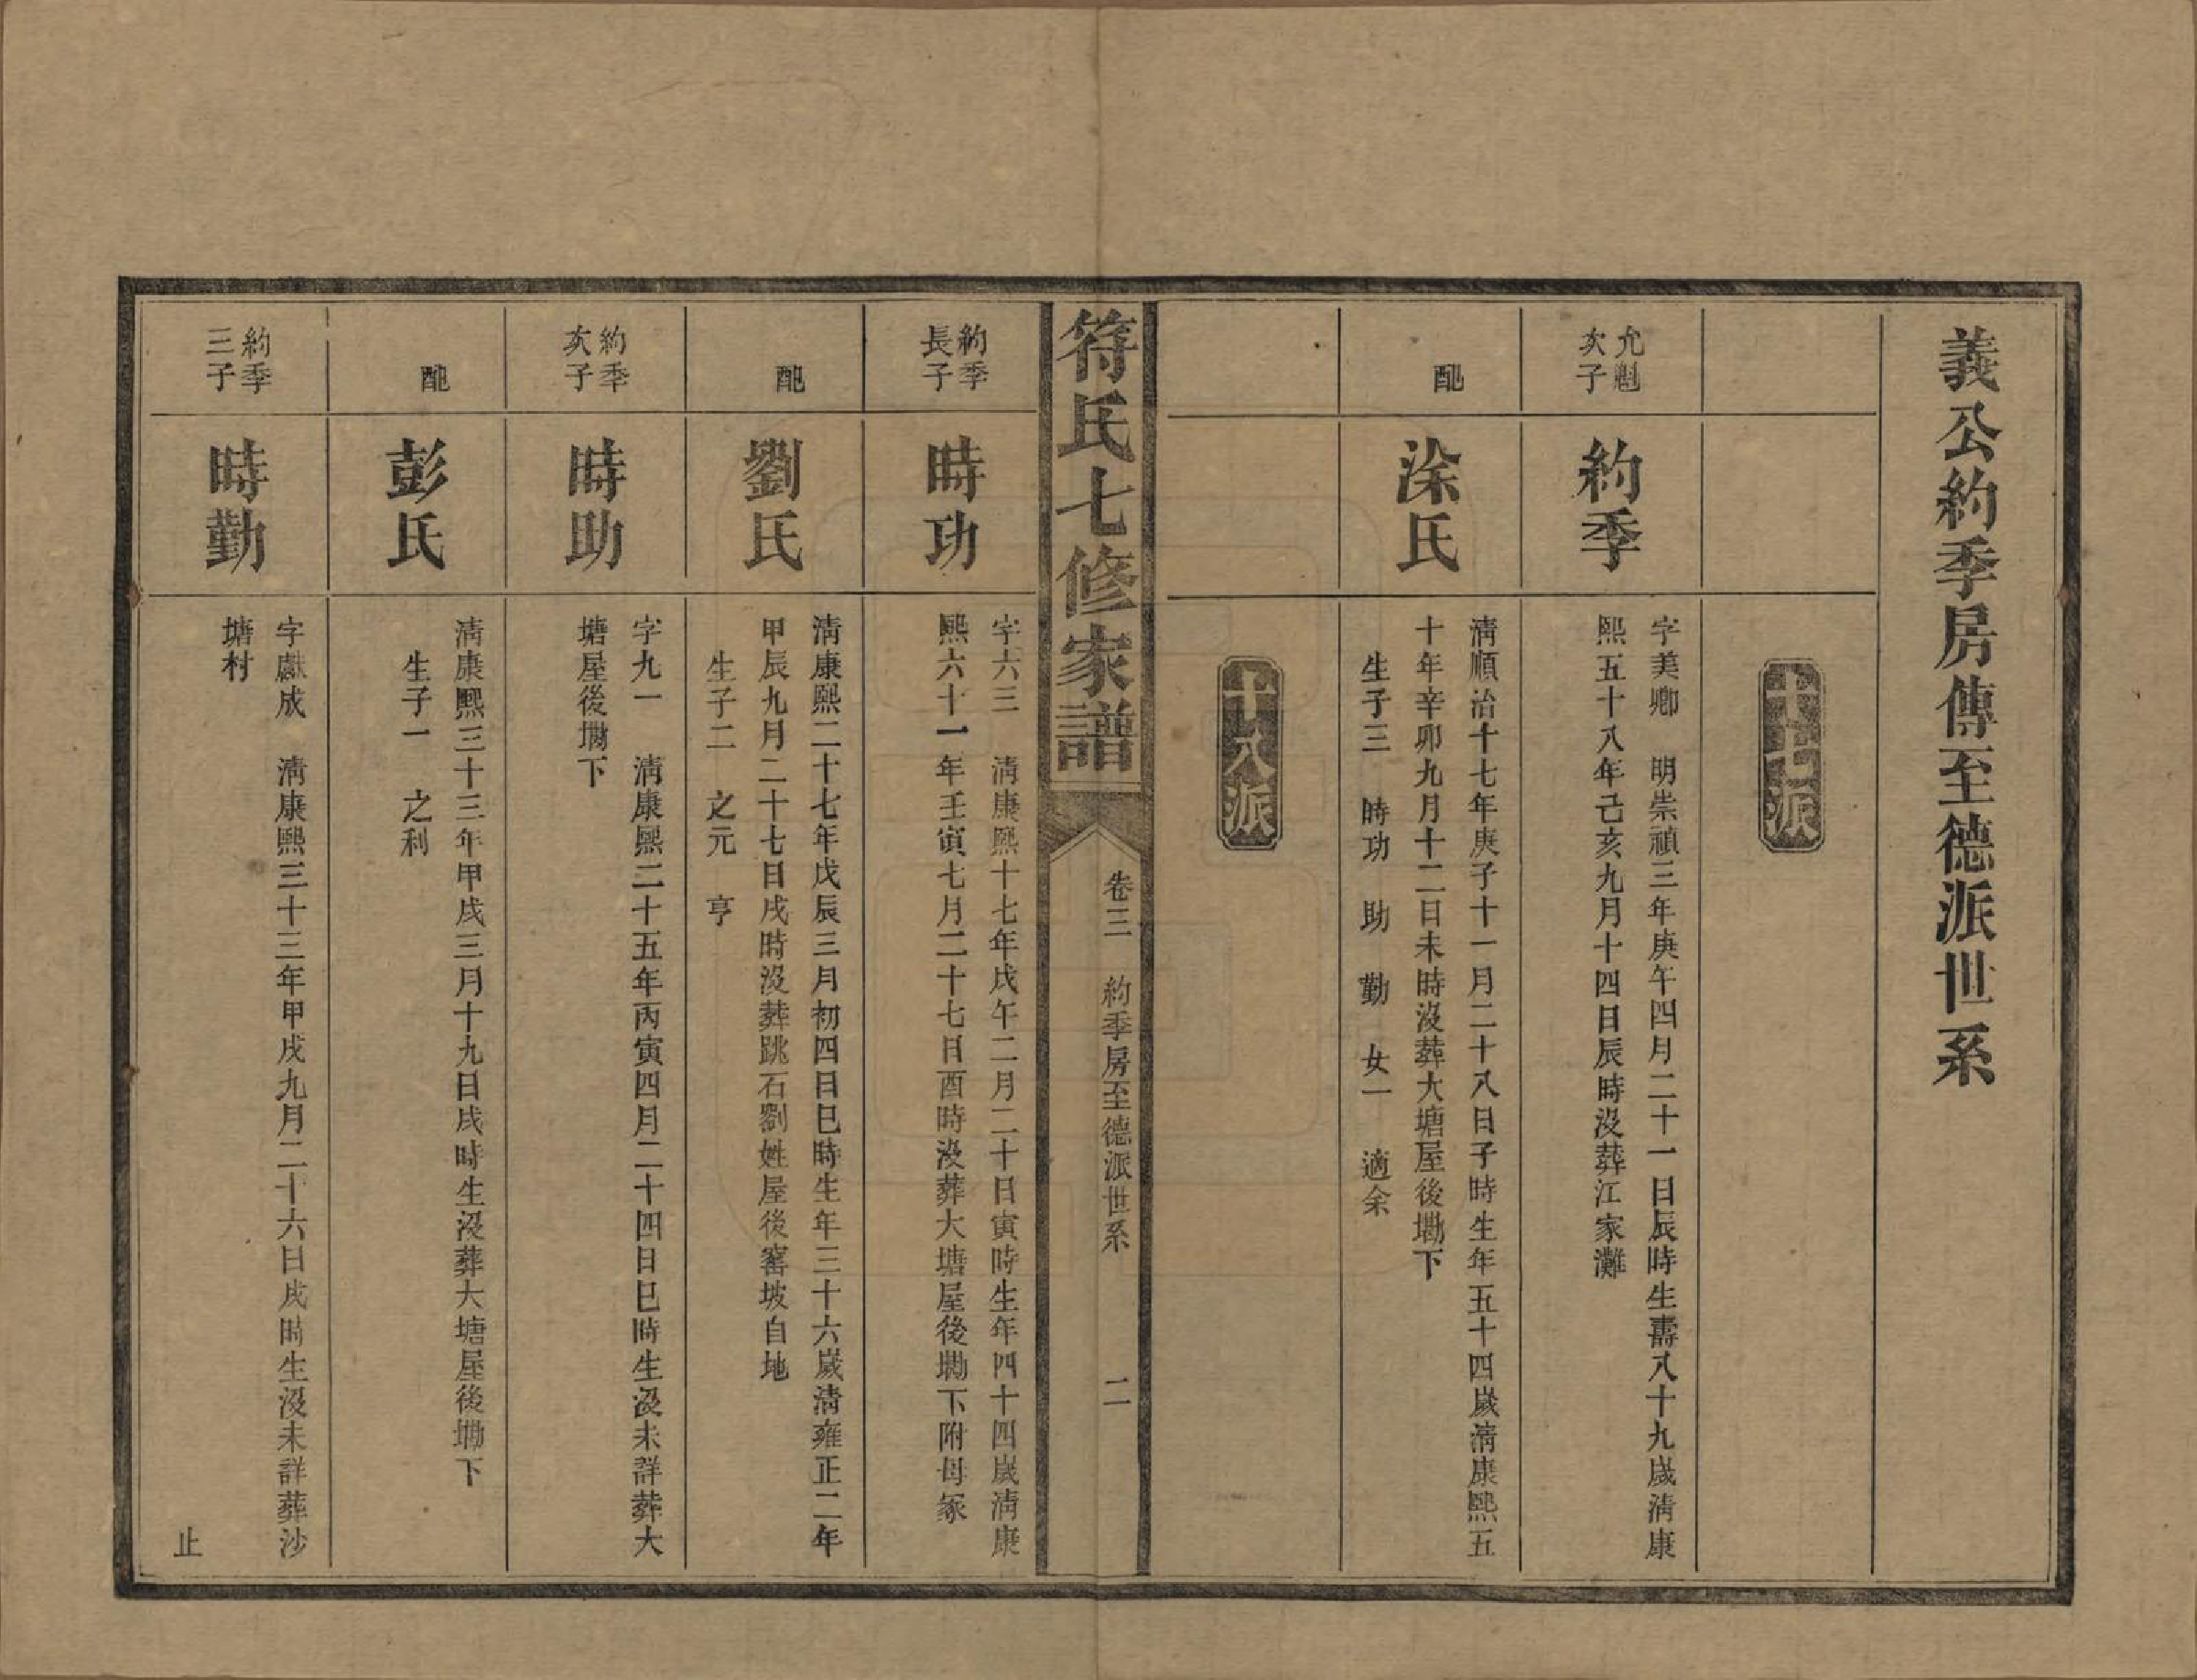 義公約季房傳至德派世系
十七派
允魁
次子
約季
字美卿　明崇禎三年庚午四月二十一日辰時生壽八十九歲清康
熙五十八年己亥九月十四日辰時沒葬江家灘
配
涂氏
清順治十七年庚子十一月二十八日子時生年五十四歲清康熙五
十年辛卯九月十二日未時沒葬大塘屋後墈下
生子三　時功　助　勤　女一　適余
十八派
符氏七修家譜
卷三　約季房至德派世系　二
約季
長子
時功
字六三　清康熙十七年戊午二月二十日寅時生年四十四歲清康
熙六十一年壬寅七月二十七日酉時沒葬大塘屋後墈下附母冢
配
劉氏
清康熙二十七年戊辰三月初四日巳時生年三十六歲清雍正二年
甲辰九月二十七日戌時沒葬跳石劉姓屋後窰坡自地
生子二　之元　亨
約季
次子
時助
字九一　清康熙二十五年丙寅四月二十四日巳時生沒未詳葬大
塘屋後墈下
配
彭氏
清康熙三十三年甲戌三月十九日戌時生沒葬大塘屋後墈下
生子一　之利
約季
三子
時勤
字獻成　清康熙三十三年甲戌九月二十六日戌時生沒未詳葬沙
塘村
止